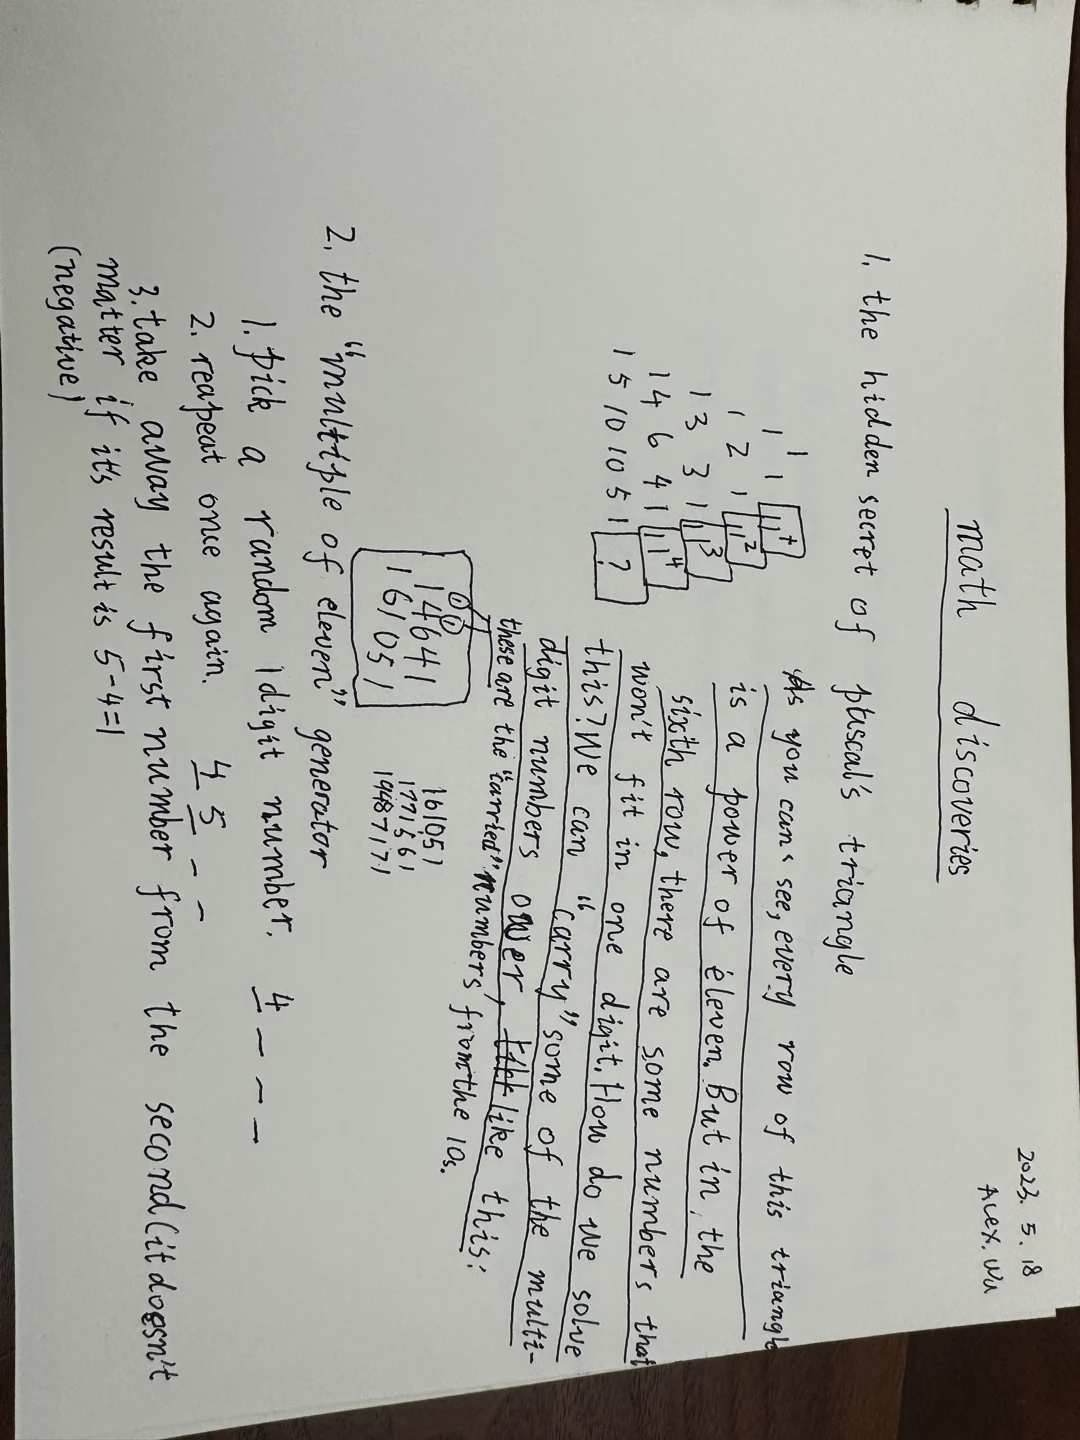 2023. 5. 18
Alex. Wu
math discoveries
1. the hidden secret of pascal's triangle
1
1 1 11
1 2 1 11²
1 3 3 1 11³
1 4 6 4 1 11⁴
1 5 10 10 5 1 ?
As you can see, every row of this triangle
is a power of eleven. But in the
sixth row, there are some numbers that
won't fit in one digit. How do we solve
this? We can "carry" some of the multi-
digit numbers over, like this:
these are the "carried" numbers from the 10s.
① ①
1 4 6 4 1
1 6 1 0 5 1
161051
1771561
19487171
2. the "multiple of eleven" generator
1. pick a random 1 digit number. 4 _ _ _
2. reapeat once again. 4 5 _ _
3. take away the first number from the second (it doesn't
matter if it's result is 5-4=1
(negative)